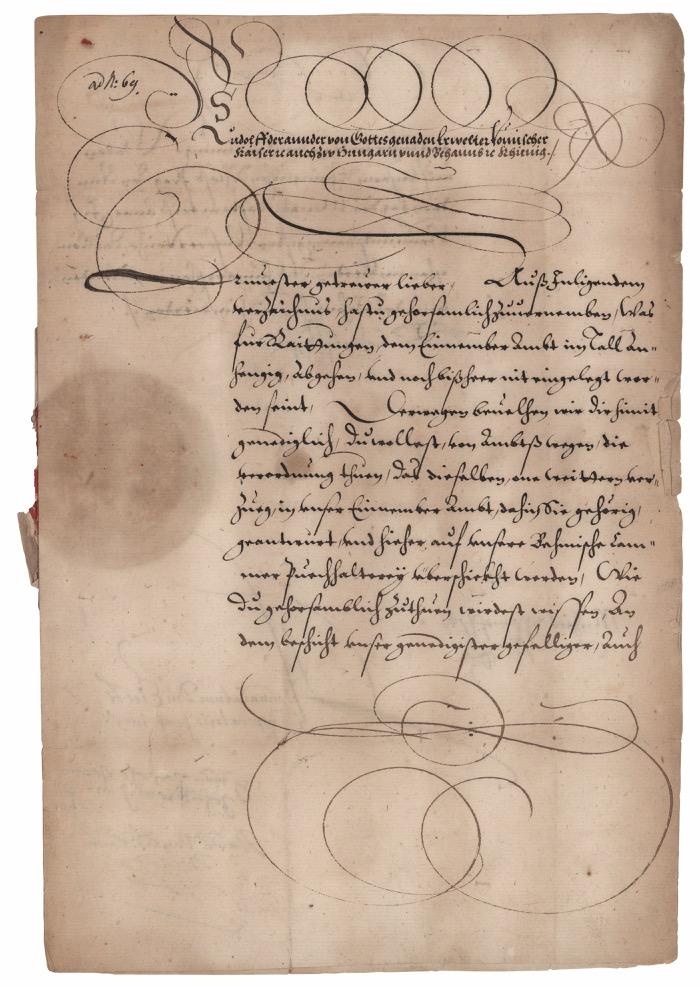 ad N: 69.
Rudolff der annder von Gottes genaden Erwelter Römischer
Kaiser ꝛc auch zu Hungarn vnnd Behaimb ꝛc Khienig.
Ernuester getrewer lieber, Auß Inligendem
verzaichnus hastu gehorsamlich zuuernemben, Was
fur Raittungen, dem Einnember Ambt im Fall an-
hengig, abgehen, vnd noch bißheer nit eingelegt wor-
den seint, Derwegen beuelhen wir dir hiemit
genediglich, du wollest, von Ambtß wegen, die
verordnung thuen, das dieselben, one weittern ver-
zueg, in vnser Einnember Ambt, dahin Sie gehörig,
geantwurt, vnd hieher, auf vnsere Behmische Cam-
mer Puechhalterey vberschickht werden, Wie
du gehorsamblich zuthuen wirdest wissen, An
dem beschicht vnser genedigister gefelliger, Auch